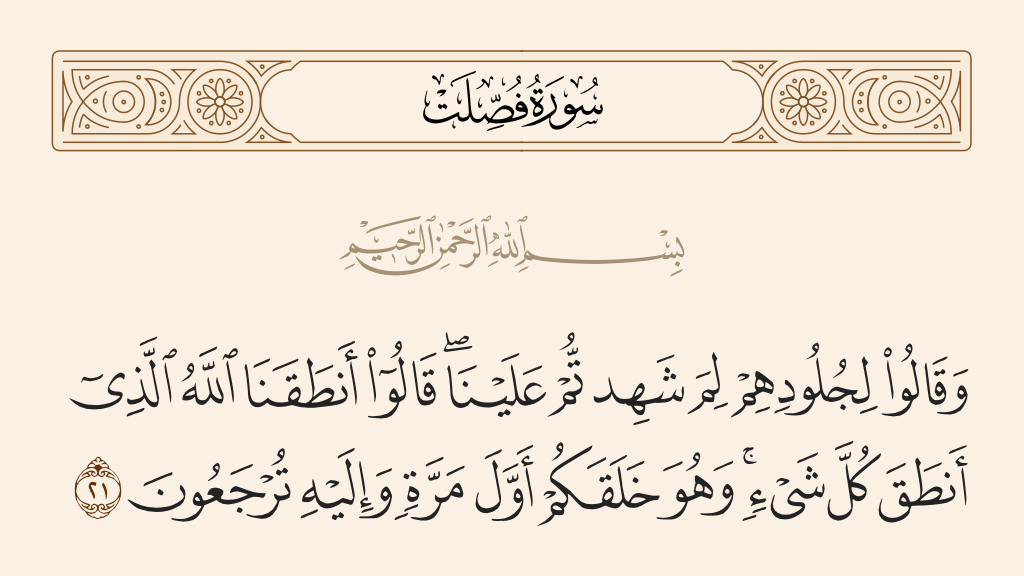 سُورَةُ فُصِّلَتْ
بِسْمِ ٱللَّهِ ٱلرَّحْمَٰنِ ٱلرَّحِيمِ
وَقَالُوا۟ لِجُلُودِهِمْ لِمَ شَهِدتُّمْ عَلَيْنَا ۖ قَالُوٓا۟ أَنطَقَنَا ٱللَّهُ ٱلَّذِىٓ
أَنطَقَ كُلَّ شَىْءٍ ۚ وَهُوَ خَلَقَكُمْ أَوَّلَ مَرَّةٍ وَإِلَيْهِ تُرْجَعُونَ ٢١